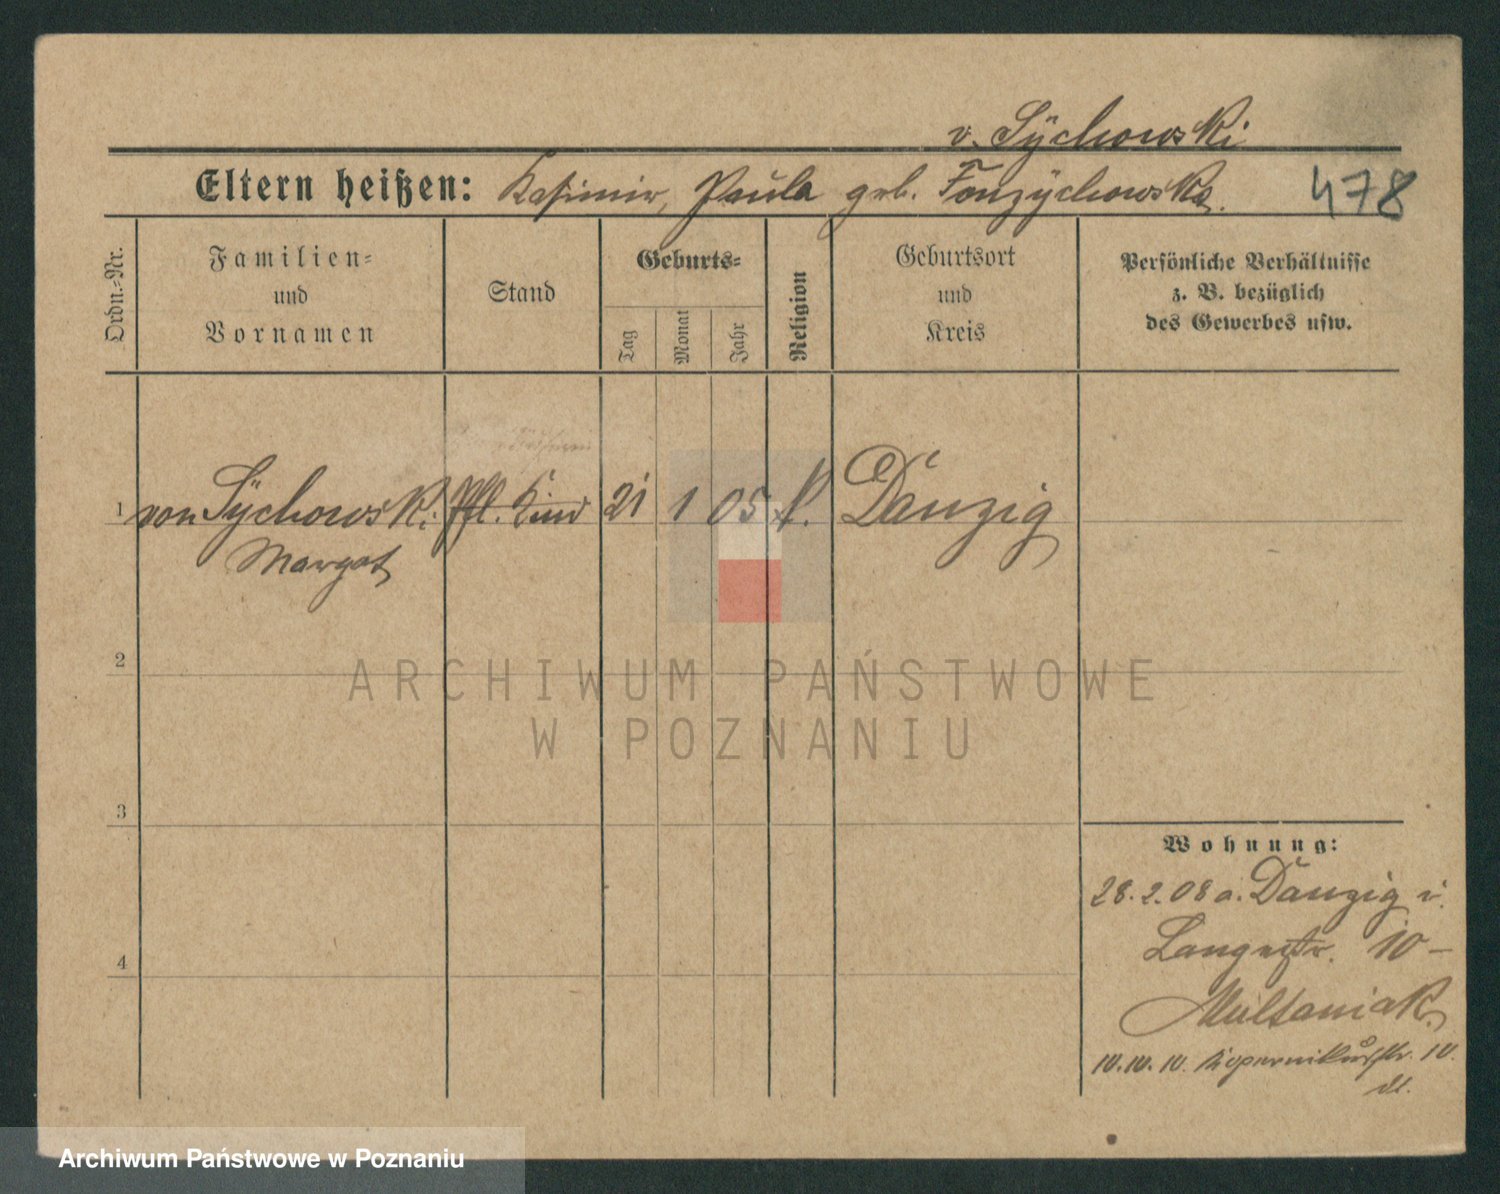 v. Sÿchowski
Eltern heißen: Kasimir, Paula geb. Fonzÿchowska. 478
Ordn.-Nr.
Familien-
und
Vornamen
Stand
Geburts-
Tag
Monat
Jahr
Religion
Geburtsort
und
Kreis
Persönliche Verhältnisse
z. B. bezüglich
des Gewerbes usw.
1 von Sÿchowski Pfl. Kind 21 1 05 k. Danzig
Margot
2
ARCHIWUM PAŃSTWOWE
W POZNANIU
3
Wohnung:
28.2.08 a. Danzig i.
Langestr. 10 –
4
Multaniak.
10.10.10. Kopernikusstr. 10.
Archiwum Państwowe w Poznaniu